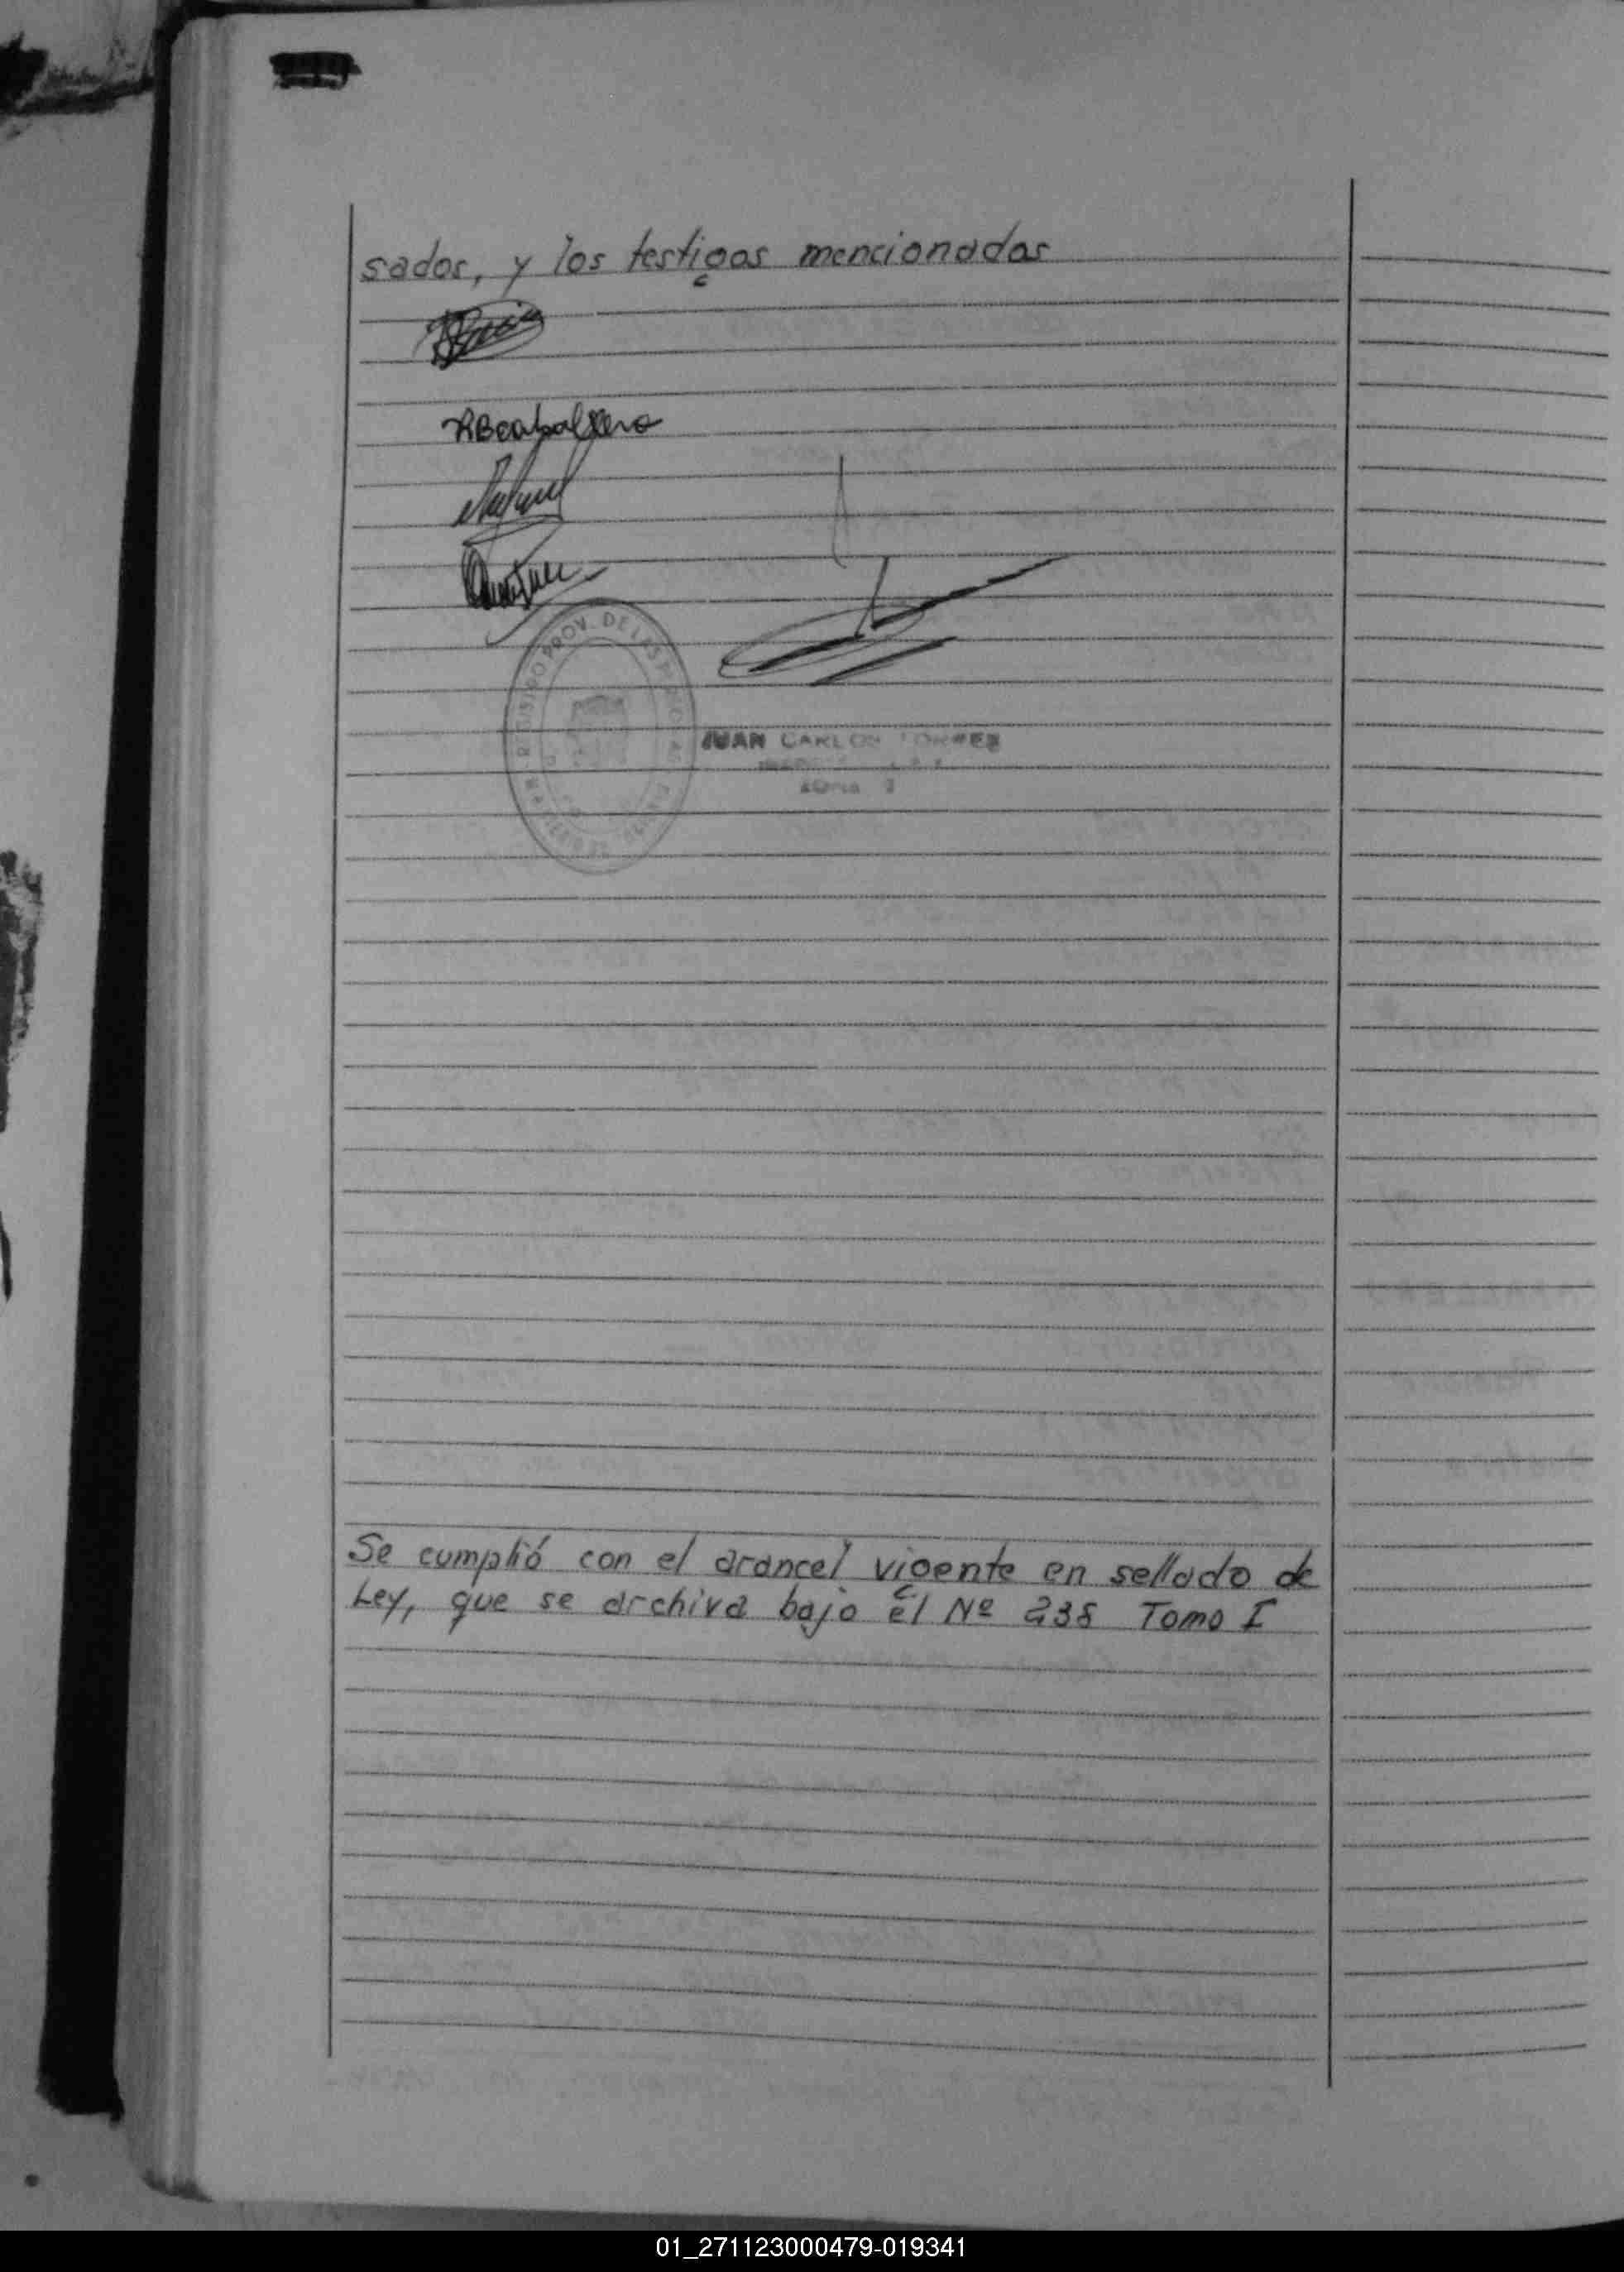 sados, y los testigos mencionados
RBcaballero
REGISTRO PROV. DE LAS PERSONAS
JUAN CARLOS TORRES
ZONA
Se cumplió con el arancel vigente en sellado de
Ley, que se archiva bajo el Nº 238 Tomo I
01_271123000479-019341